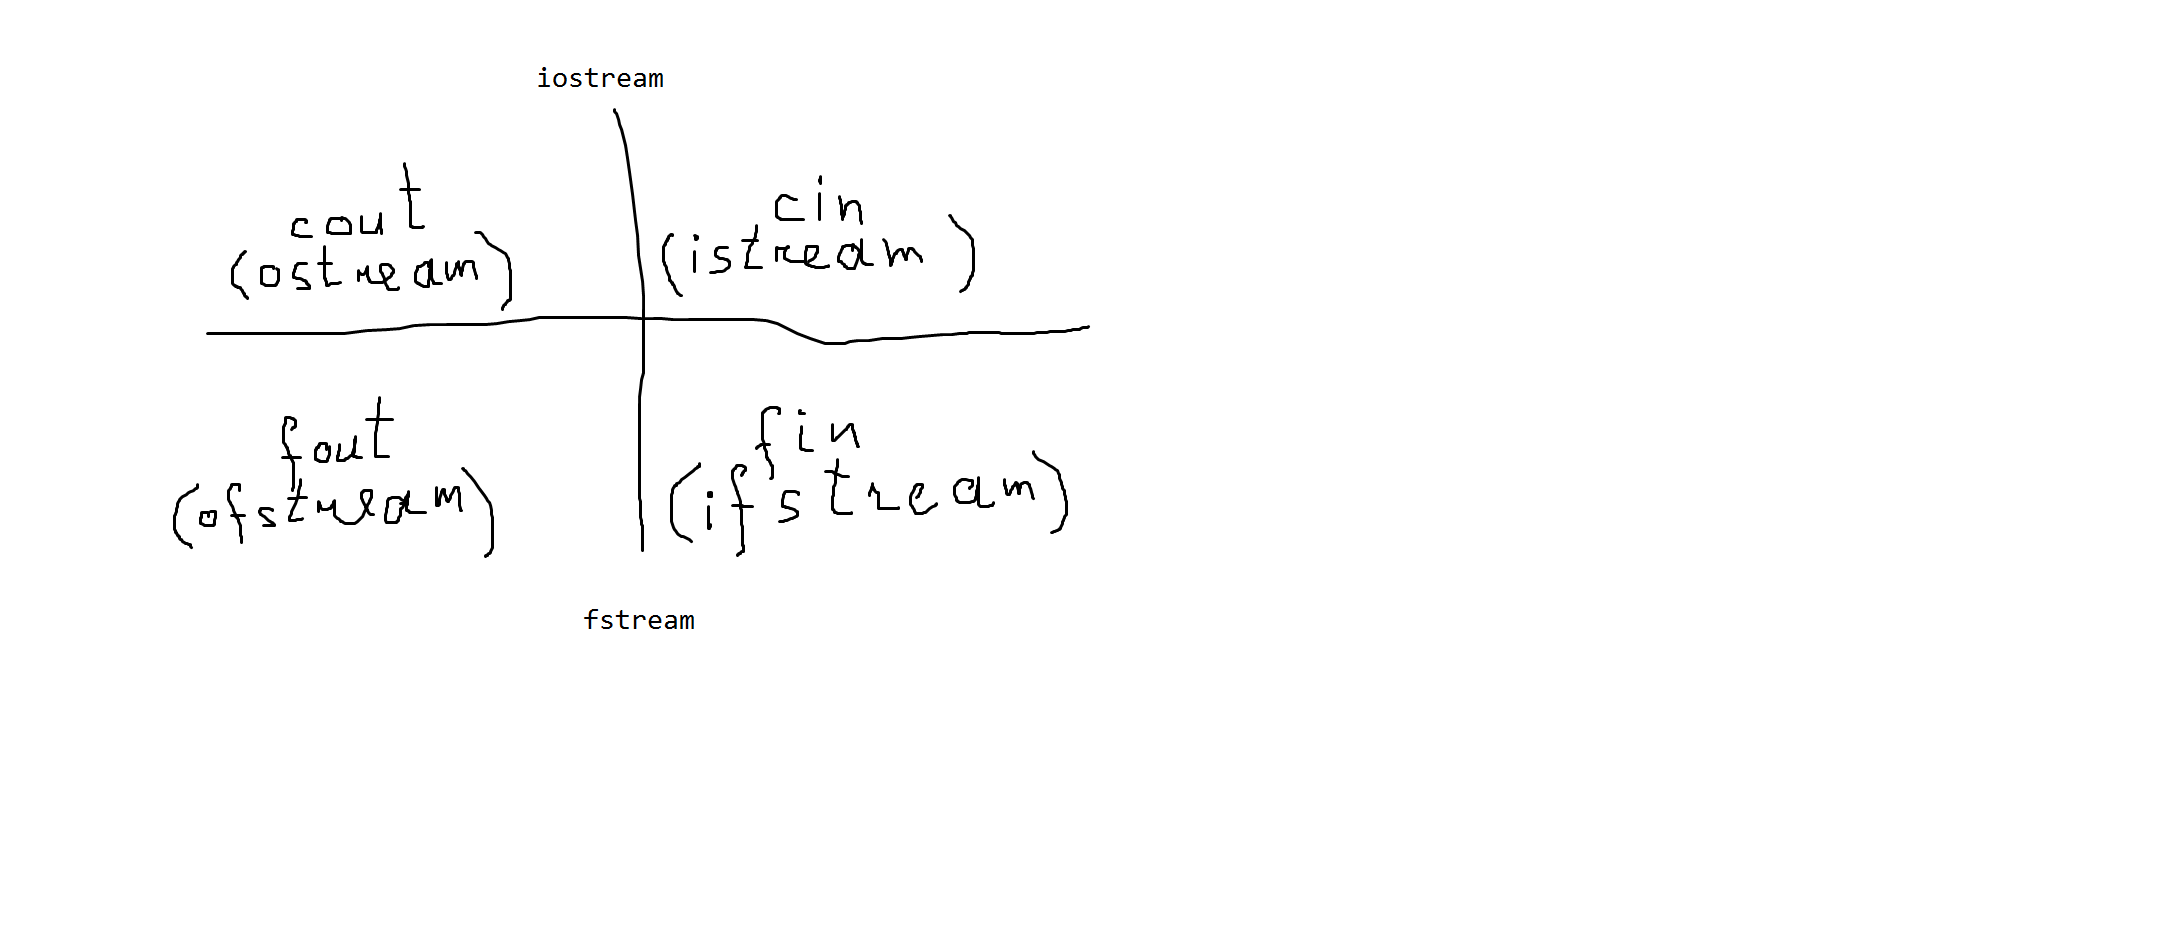 iostream
cout
(ostream)
cin
(istream)
fout
(ofstream)
fin
(ifstream)
fstream